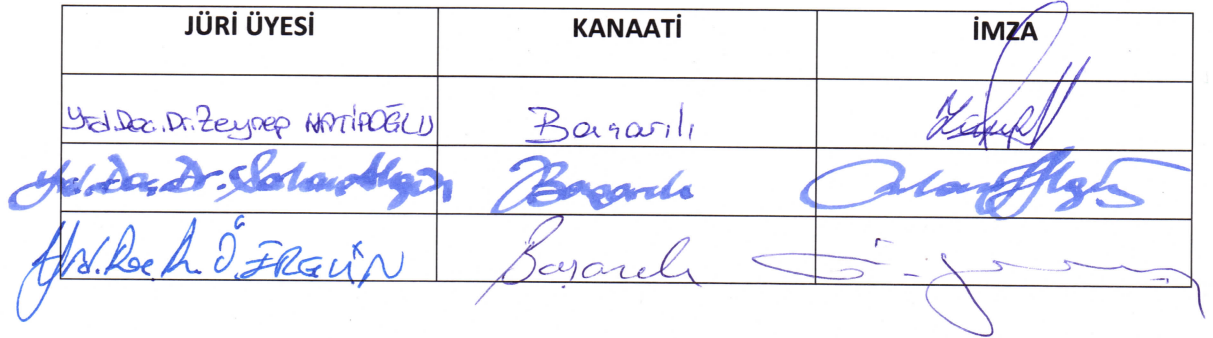 JÜRİ ÜYESİ KANAATİ İMZA
Yrd.Doç.Dr.Zeynep HATİPOĞLU Başarılı
Yrd.Doç.Dr. Başarılı
Yrd.Doç.Dr. Ö. ERGÜN Başarılı